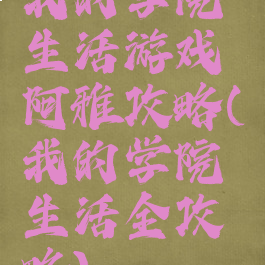 我的学院
生活游戏
阿雅攻略(
我的学院
生活全攻
略)